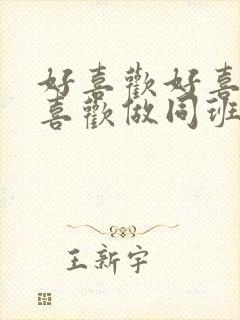 好喜歡好喜
喜歡做同班
王新宇